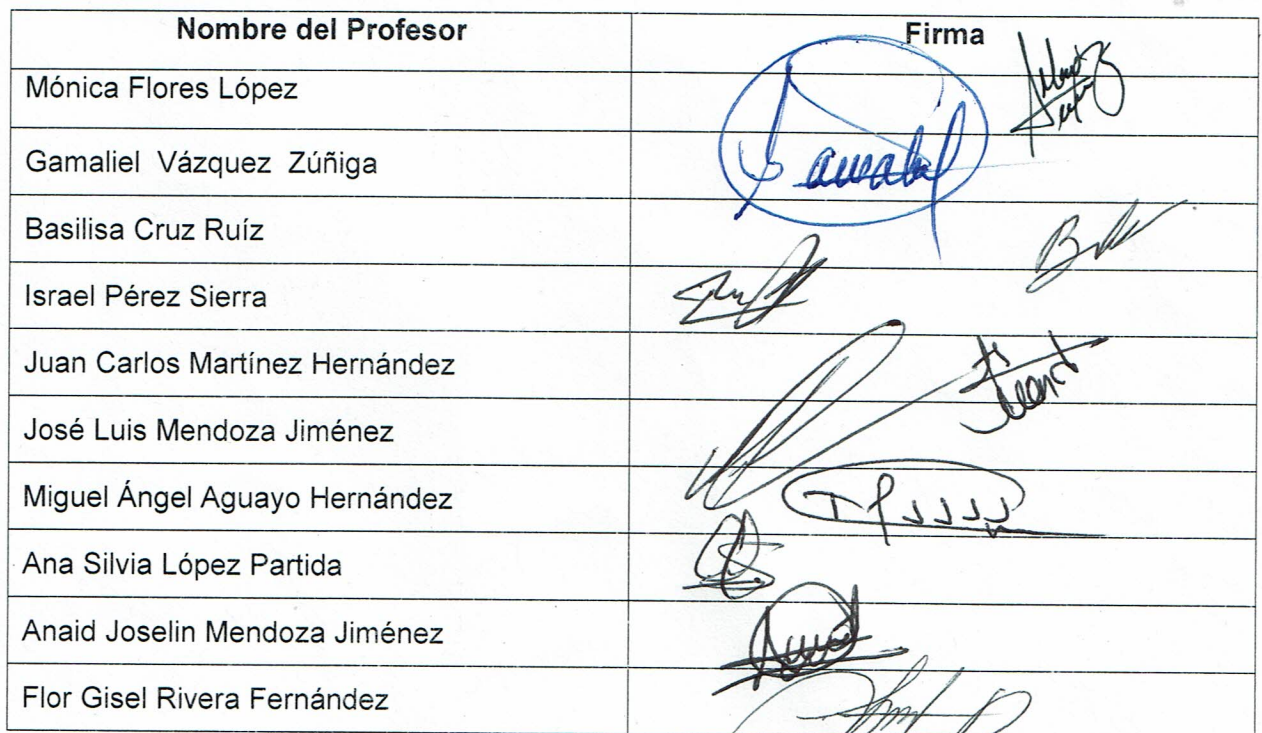 Nombre del Profesor Firma
Mónica Flores López
Gamaliel Vázquez Zúñiga
Basilisa Cruz Ruíz
Israel Pérez Sierra
Juan Carlos Martínez Hernández
José Luis Mendoza Jiménez
Miguel Ángel Aguayo Hernández
Ana Silvia López Partida
Anaid Joselin Mendoza Jiménez
Flor Gisel Rivera Fernández